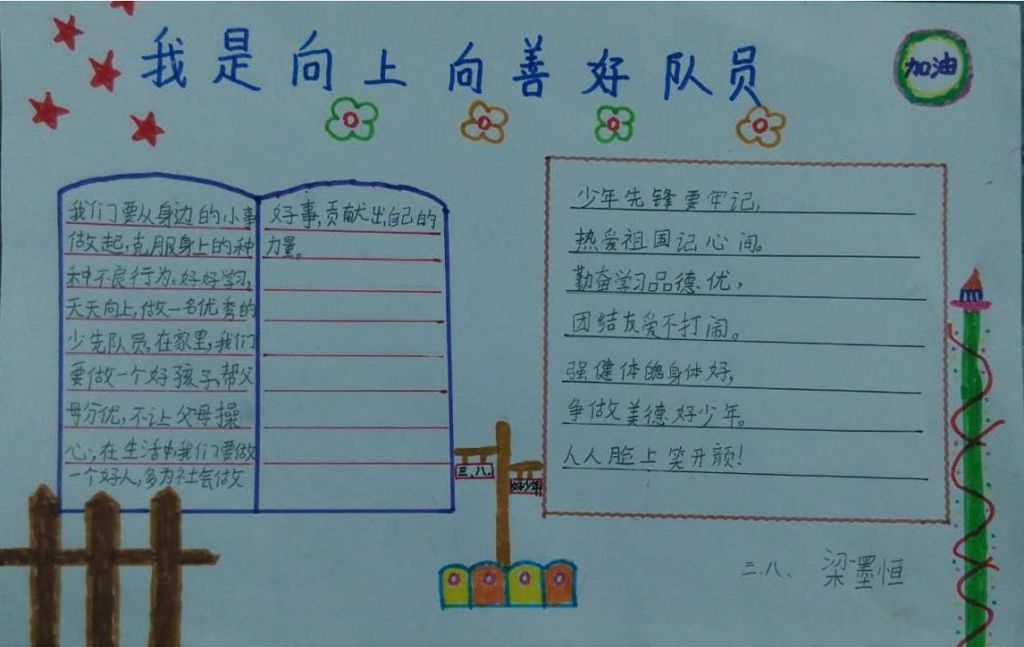 我是向上向善好队员
加油
我们要从身边的小事
做起,克服身上的种
种不良行为。好好学习,
天天向上,做一名优秀的
少先队员。在家里,我们
要做一个好孩子,帮父
母分优,不让父母操
心,在生活中我们要做
一个好人,多为社会做
好事,贡献出自己的
力量。
少年先锋要牢记,
热爱祖国记心间。
勤奋学习品德优,
团结友爱不打闹。
强健体魄身体好,
争做美德好少年。
人人脸上笑开颜!
三.八.
好少年
三.八、 梁墨恒